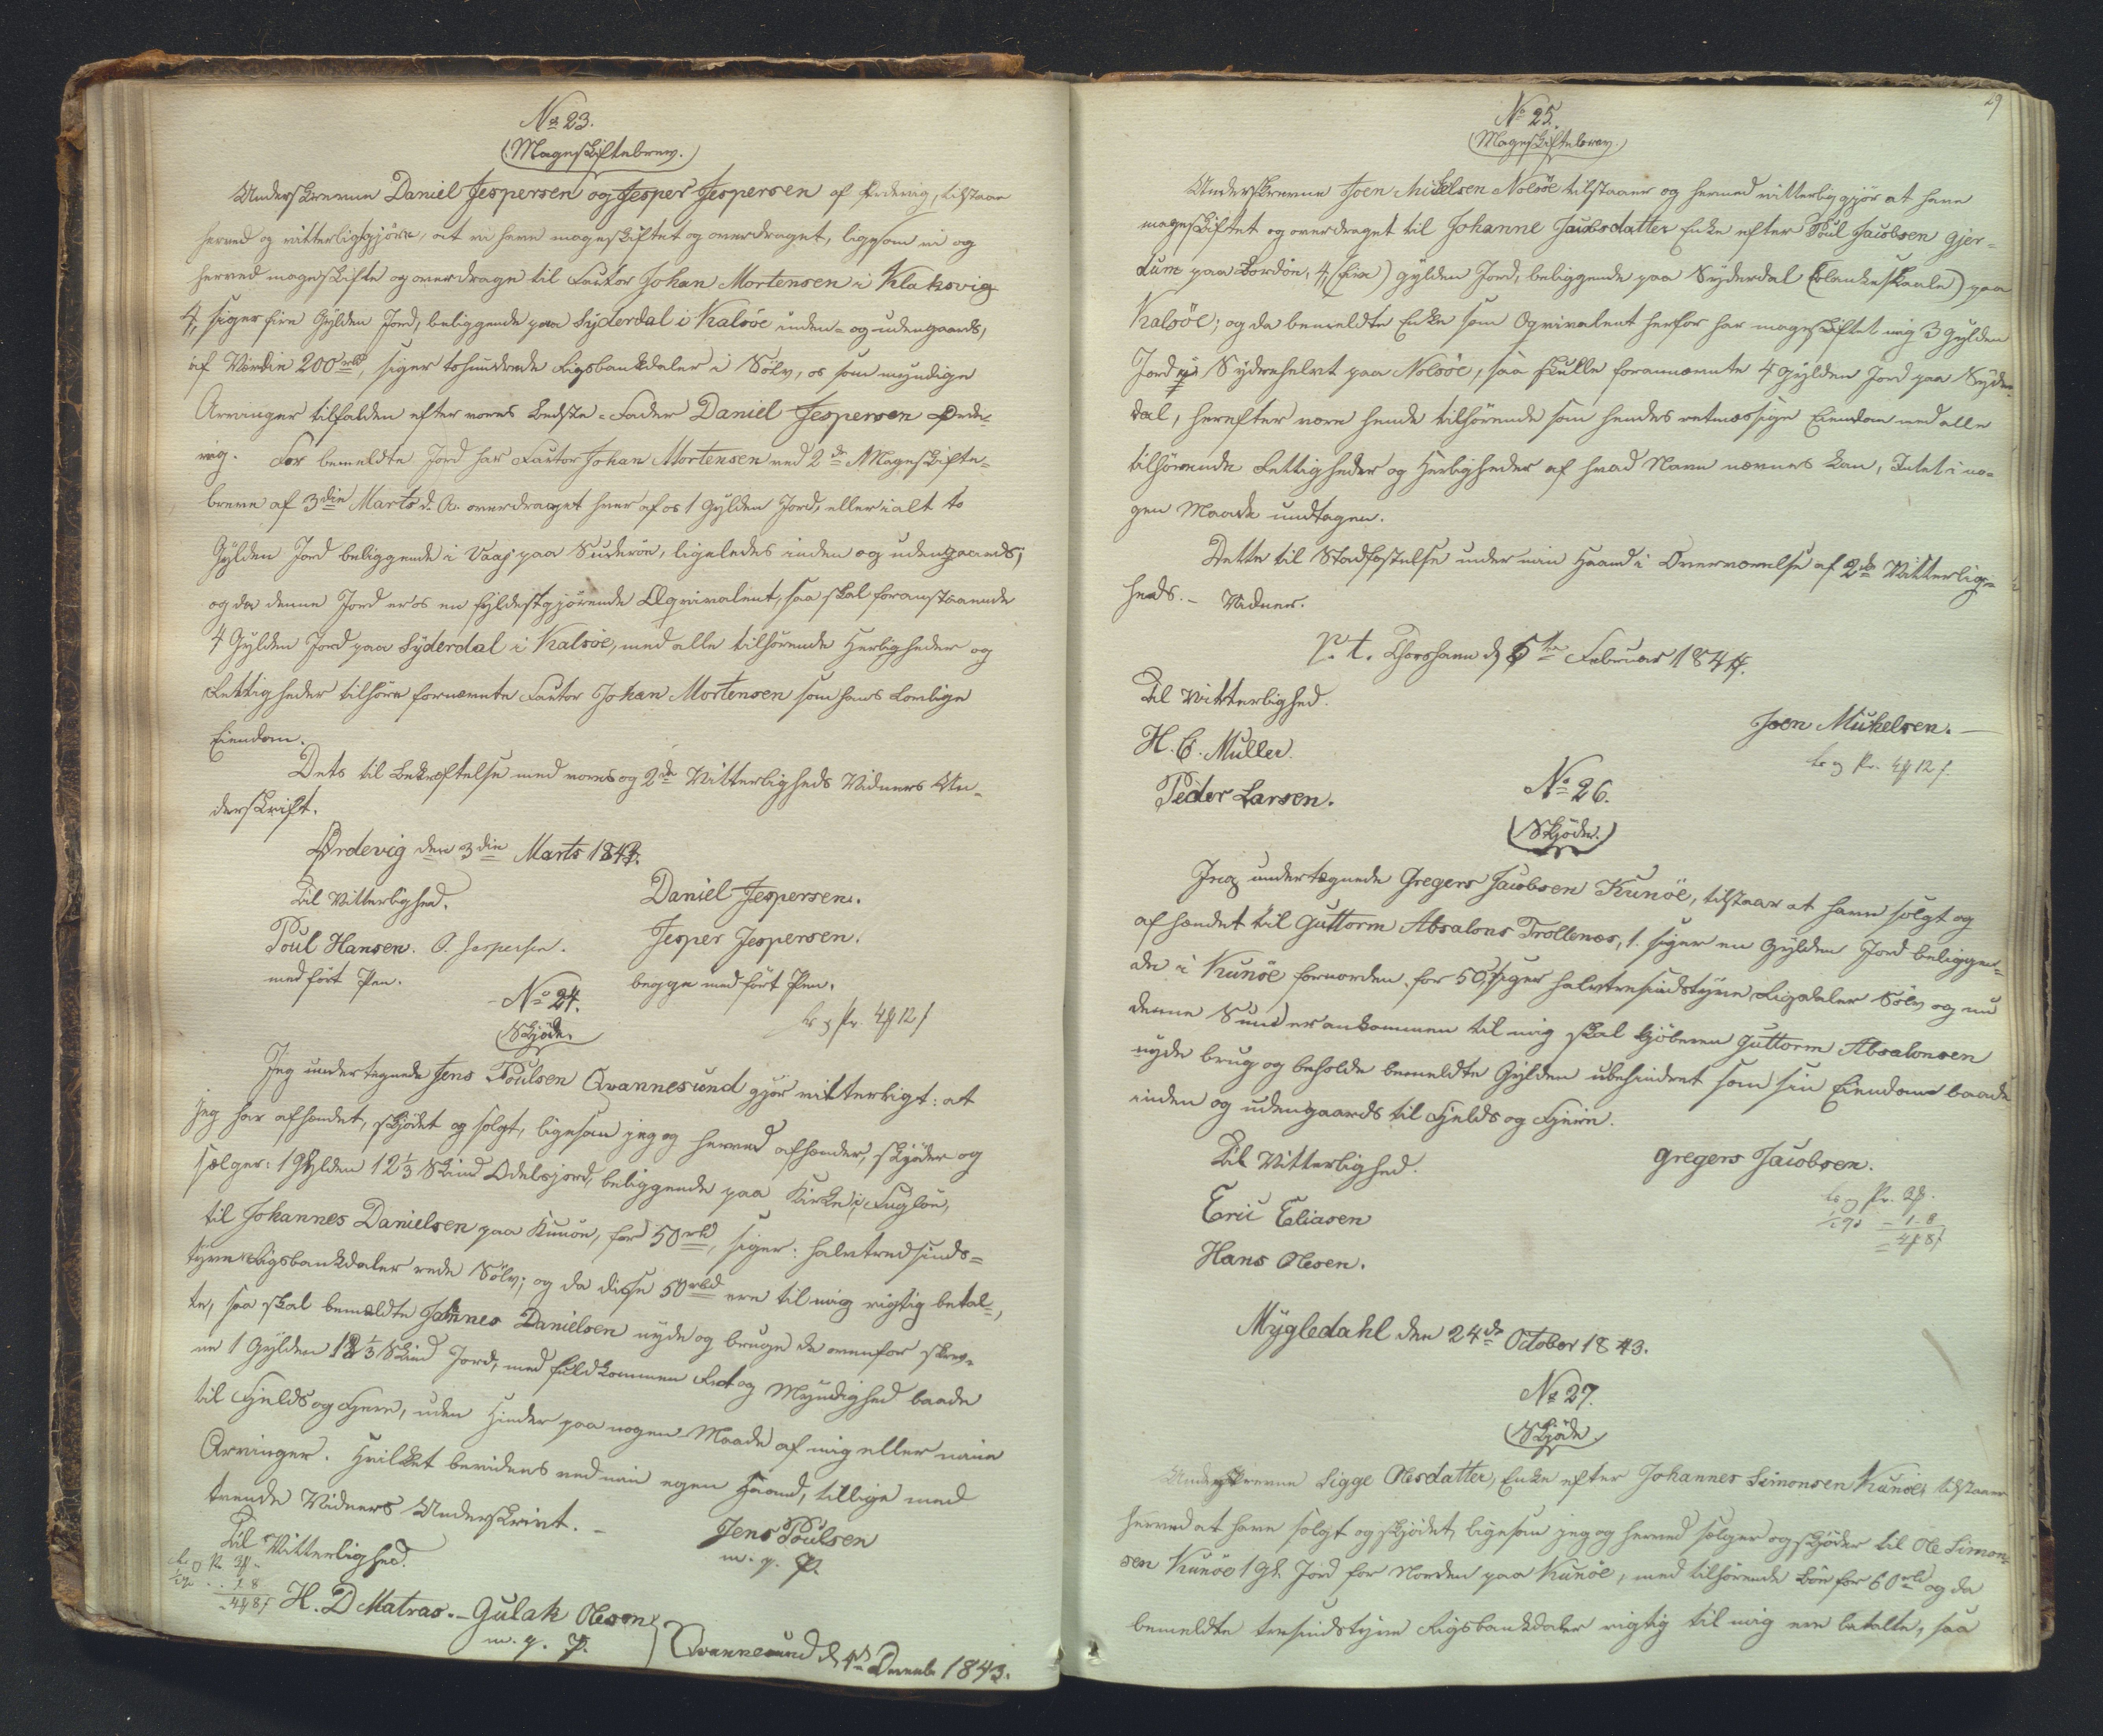 No 23.
(Mageskiftebrev.)
Underskrevne Daniel Jespersen og Jesper Jespersen af Ørdevig, tilstaae
herved og vitterliggjøre, at vi have mageskiftet og overdraget, ligesom vi og
herved mageskifte og overdrage til Factor Johan Mortensen i Klaksvig
4, siger fire Gylden Jord, beliggende paa Syderdal i Kalsöe inden- og udengaards,
af Værdie 200 rbd, siger tohundrede Rigsbankdaler i Sölv, os som myndige
Arvinger tilfalden efter vores Bedste-Fader Daniel Jespersen Ørde-
vig. For bemeldte Jord har Factor Johan Mortensen ved 2de Mageskifte-
breve af 3die Marts d. A. overdraget hver af os 1 Gylden Jord, eller ialt to
Gylden Jord beliggende i Vaag paa Suderöe, ligeledes inden og udengaards;
og da denne Jord er os en fyldestgjörende Æqvivalent, saa skal foranstaaende
4 Gylden Jord paa Syderdal i Kalsöe, med alle tilhörende Herligheder og
Rettigheder tilhöre fornævnte Factor Johan Mortensen som hans lovlige
Eiendom.
Dets til Bekræftelse med vores og 2de Vitterligheds Vidners Un-
derskrift.
Ørdevig den 3die Marts 184
Til Vitterlighed. Daniel Jespersen.
Poul Hansen. O. Jespersen. Jesper Jespersen.
med fört Pen. begge med fört Pen.
No 24. 12 f
Skjöde.
Jeg undertegnede Jens Poulsen Qvannesund gjör vitterligt: at
jeg har afhændet, skjödet og solgt, ligesom jeg og herved afhænder, skjöder og
sælger: 1 Gylden 12 1/3 Skind Odelsjord, beliggende paa Kirke i Fuglöe,
til Johannes Danielsen paa Kunöe, for 50 rbd, siger: halvtredsinds-
tyve Rigsbankdaler rede Sölv; og da disse 50 rbd ere til mig rigtig betal-
te, saa skal bemeldte Johannes Danielsen nyde og bruge de ovenfor skrev-
ne 1 Gylden 12 1/3 Skind Jord, med fuldkommen Ret og Myndighed baade
til Fjelds og Fjere, uden Hinder paa nogen Maade af mig eller mine
Arvinger. Hvilket bevidnes ved min egen Haand, tillige med
tvende Vidners Underskrivt. -
Til Vitterlighed. Jens Poulsen
m. f. P.
H. D Matras. - Gulak Olesen
m. f. P. Qvannesund d 4de Decemb 1843.
29
No 25.
(Mageskiftebrev.)
Underskrevne Joen Mickelsen Nolsöe tilstaaer og herved vitterliggjör at have
mageskiftet og overdraget til Johanne Jacobsdatter Enke efter Poul Jacobsen Gjer-
dum paa Bordöe, 4, (fire) Gylden Jord, beliggende paa Syderdal (Blankeskaale) paa
Kalsöe; og da bemeldte Enke som Eqvivalent herfor har mageskiftet mig 3 Gylden
Jord i Syderhelvt paa Nolsöe, saa skulle forannævnte 4 Gylden Jord paa Syder-
dal, herefter være hende tilhörende som hendes retmæssige Eiendom med alle
tilhörende Rettigheder og Herligheder af hvad Navn nævnes kan, Intet i no-
gen Maade undtagen.
Dette til Stadfæstelse under min Haand i Overværelse af 2de Vitterlig-
heds. - Vidner.
p. t. Thorshavn d 5te Februar 1844.
Til Vitterlighed.
Joen Mickelsen. -
H. C. Müller.
12 f.
Peder Larsen. No 26.
(Skjöde.)
Jeg undertegnede Gregers Jacobsen Kunöe, tilstaar at have solgt og
afhændet til Guttorm Absalons Trollenæs, 1. siger en Gylden Jord beliggen-
de i Kunöe fornorden, for 50, siger halvtresindstyve Rigsdaler Sölv og nu
denne Sum er ankommen til mig skal Kjöberen Guttorm Absalonsen
nyde brug og beholde bemeldte Gylden ubehindret som sin Eiendom baade
inden og udengaards til Fjelds og Fjere.
Til Vitterlighed. Gregers Jacobsen.
Eric Eliasen
Hans Olesen.
Mygledahl den 24de October 1843.
No 27.
Skjöde
Underskrevne Sigge Olesdatter, Enke efter Johannes Simonsen Kunöe, tilstaaer
herved at have solgt og skjödet, ligesom jeg og herved sælger og skjöder til Ole Simon-
sen Kunöe 1 Gl. Jord for Norden paa Kunöe, med tilhörende Böe for 60 rbd og da
bemeldte tresindstyve Rigsbankdaler rigtig til mig ere betalte, saa